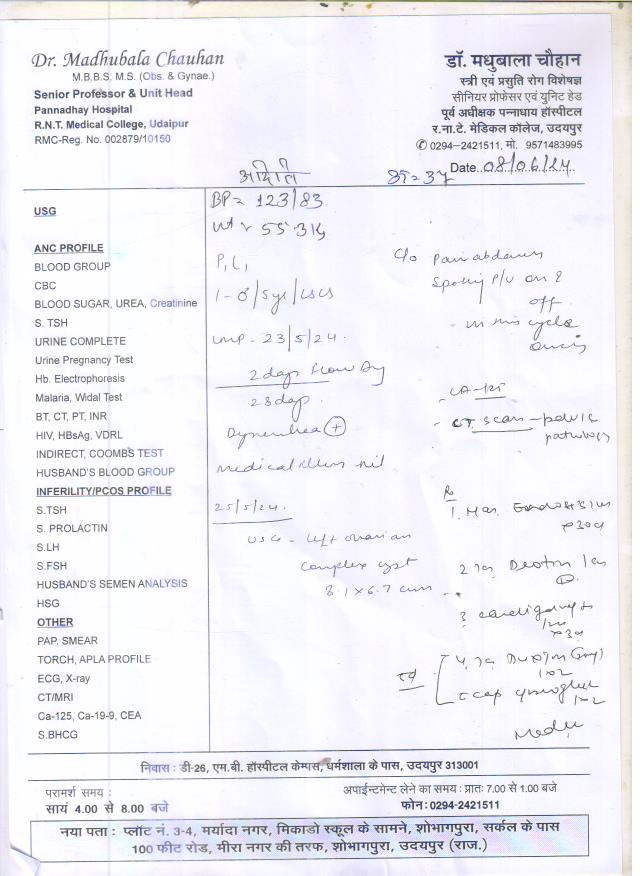 Dr. Madhubala Chauhan
M.B.B.S. M.S. (Obs. & Gynae.)
Senior Professor & Unit Head
Pannadhay Hospital
R.N.T. Medical College, Udaipur
RMC-Reg. No. 002879/10150
डॉ. मधुबाला चौहान
स्त्री एवं प्रसुति रोग विशेषज्ञ
सीनियर प्रोफेसर एवं युनिट हेड
पूर्व अधीक्षक पन्नाधाय हॉस्पीटल
र.ना.टे. मेडिकल कॉलेज, उदयपुर
✆ 0294-2421511, मो. 9571483995
Date 08/06/24
USG
ANC PROFILE
BLOOD GROUP
CBC
BLOOD SUGAR, UREA, Creatinine
S. TSH
URINE COMPLETE
Urine Pregnancy Test
Hb. Electrophoresis
Malaria, Widal Test
BT, CT, PT, INR
HIV, HBsAg, VDRL
INDIRECT, COOMBS TEST
HUSBAND'S BLOOD GROUP
INFERILITY/PCOS PROFILE
S.TSH
S. PROLACTIN
S.LH
S.FSH
HUSBAND'S SEMEN ANALYSIS
HSG
OTHER
PAP. SMEAR
TORCH, APLA PROFILE
ECG, X-ray
CT/MRI
Ca-125, Ca-19-9, CEA
S.BHCG
BP = 123/83
P1 L1
LMP - 23/5/24
28 days
Medical illness nil
25/5/24
USG - left ovarian
complex cyst
8.1 x 6.7 cm
c/o Pain abdomen
Spotting P/V on &
off
in this cycle
CA-125
CT scan - pelvic
pathology
निवास : डी-26, एम.बी. हॉस्पीटल केम्पस, धर्मशाला के पास, उदयपुर 313001
परामर्श समय :
सायं 4.00 से 8.00 बजे
अपाईन्टमेन्ट लेने का समय : प्रातः 7.00 से 1.00 बजे
फोन : 0294-2421511
नया पता : प्लॉट नं. 3-4, मर्यादा नगर, मिकाडो स्कूल के सामने, शोभागपुरा, सर्कल के पास
100 फीट रोड, मीरा नगर की तरफ, शोभागपुरा, उदयपुर (राज.)